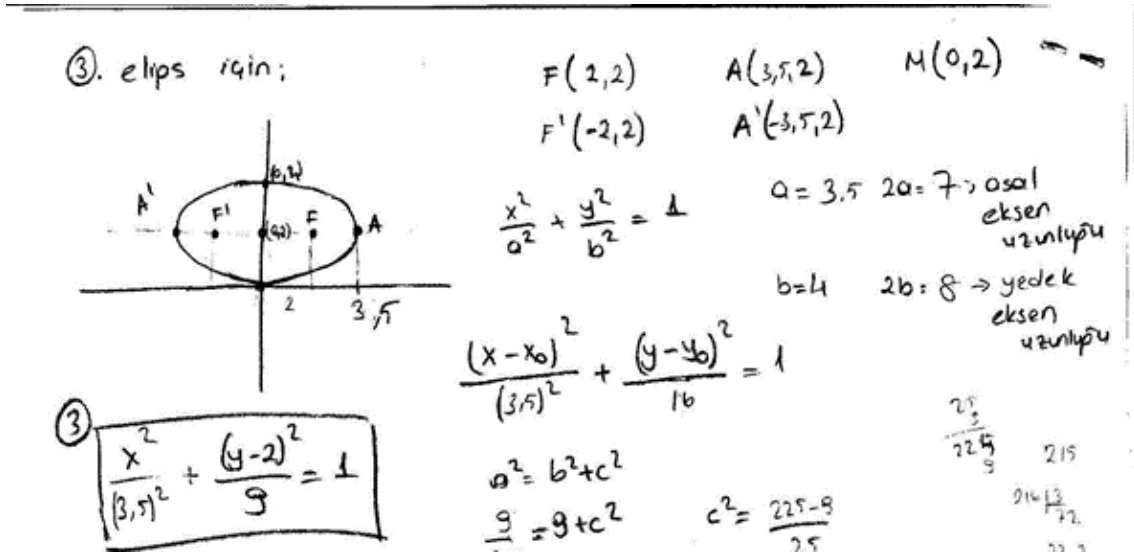 ③. elips için;
F(2,2) A(3,5,2) M(0,2)
F'(-2,2) A'(-3,5,2)
A' F' (0,2) F A
2 3,5
x²/a² + y²/b² = 1
a = 3.5 2a = 7 → asal
eksen
uzunluğu
b=4 2b = 8 → yedek
eksen
uzunluğu
(x-x₀)²/(3,5)² + (y-y₀)²/16 = 1
③ x²/(3,5)² + (y-2)²/9 = 1
a² = b²+c²
= 9+c² c² = 225-9/25
215